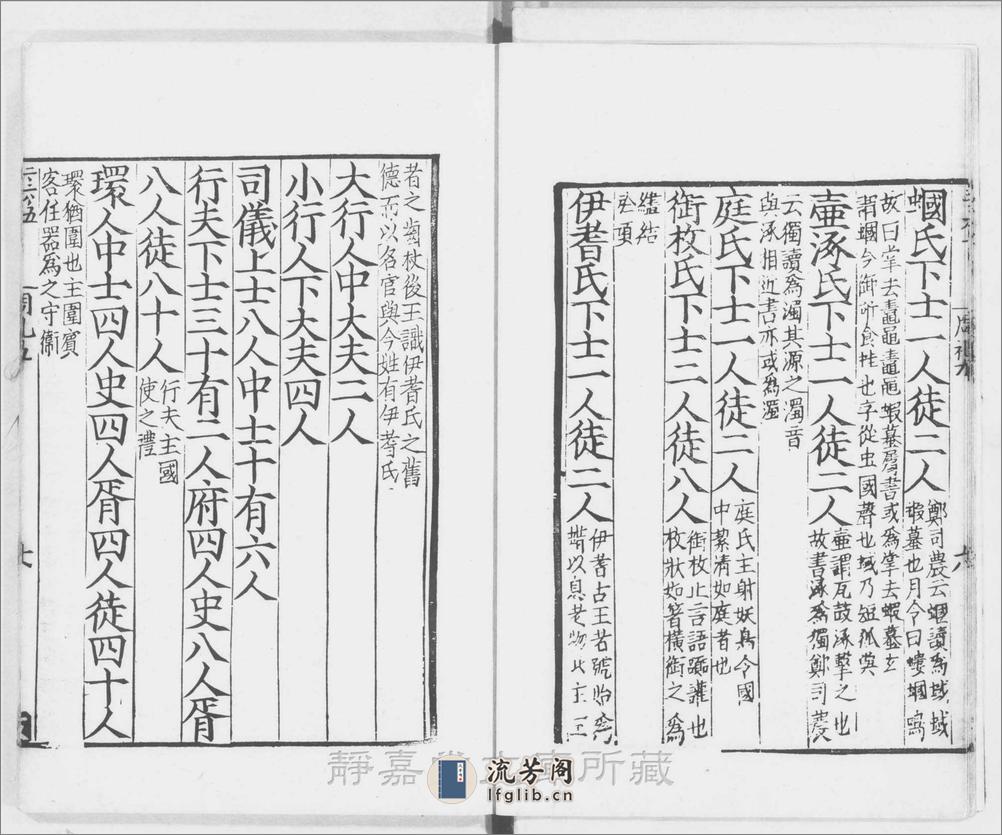 蟈氏下士一人徒二人
鄭司農云蟈讀爲蜮蜮
蝦蟇也月令曰螻蟈鳴
故曰掌去鼃黽鼃黽蝦蟇屬書或爲掌去蝦蟇玄
謂蟈今御所食蛙也字從虫國聲也蜮乃短狐與
壺涿氏下士一人徒二人
壺謂瓦鼓涿擊之也
故書涿爲獨鄭司農
云獨讀爲濁其源之濁音
與涿相近書亦或爲濁
庭氏下士一人徒二人
庭氏主射妖鳥令國
中絜清如庭者也
銜枚氏下士二人徒八人
銜枚止言語囂讙也
枚狀如箸橫銜之爲
繣結
於項
伊耆氏下士一人徒二人
伊耆古王者號始爲
蜡以息老物此主王
六
者之齒杖後王識伊耆氏之舊
德而以名官與今姓有伊耆氏
大行人中大夫二人
小行人下大夫四人
司儀上士八人中士十有六人
行夫下士三十有二人府四人史八人胥
八人徒八十人
行夫主國
使之禮
環人中士四人史四人胥四人徒四十人
環猶圍也主圍賓
客任器爲之守衞
靜嘉堂文庫所藏
流芳阁
lfglib.cn